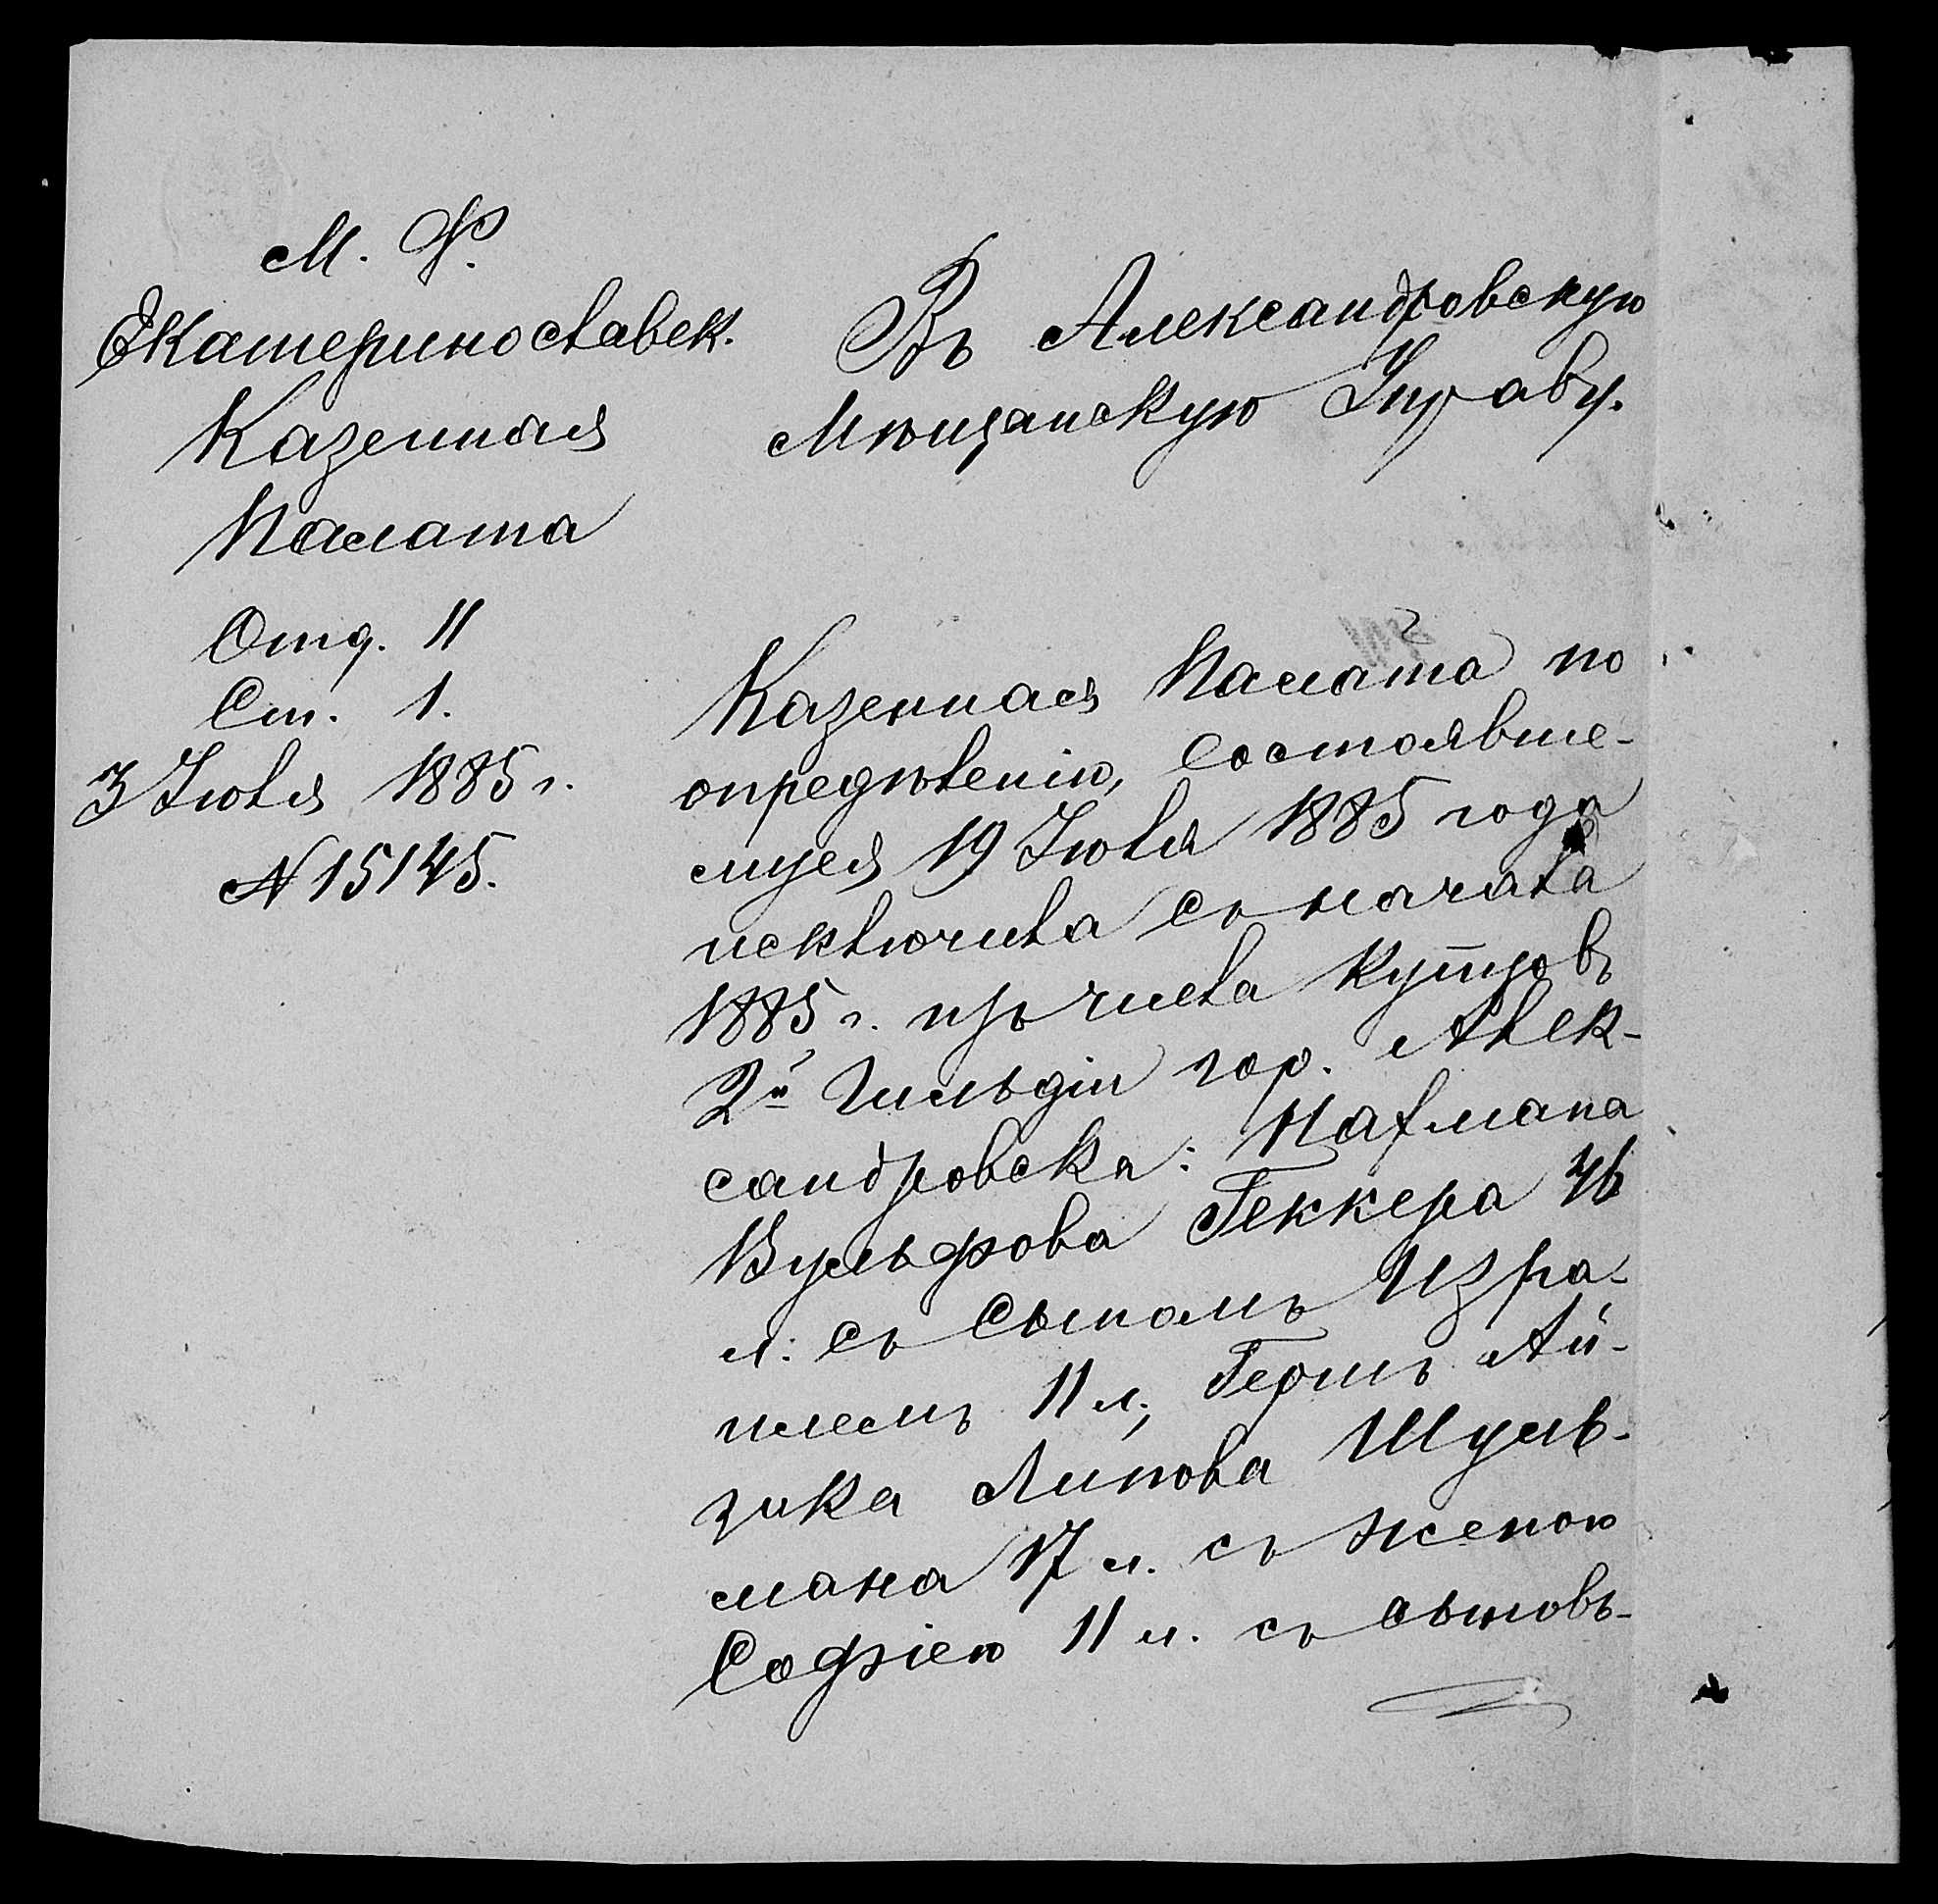 М. Ф.
Екатеринославск.
Казенная
Палата
Отд. II
Ст. 1.
3 Іюля 1885 г.
№ 15145.
Въ Александровскую
Мѣщанскую Управу.
Казенная Палата по
опредѣленію, состоявше-
муся 19 Іюля 1885 года
исключила съ начала
1885 г. изъ числа купцовъ
2й гильдіи гор. Алек-
сандровска: Нахмана
Вульфова Геккера 46
л: съ сыномъ Изра-
илемъ 11 л., Гершъ Ай-
зика Липова Шуль-
мана 17 л. съ женою
Софіею 11 л. съ сыновь-